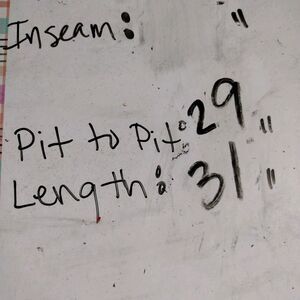 Inseam: "
Pit to Pit: 29"
Length: 31"